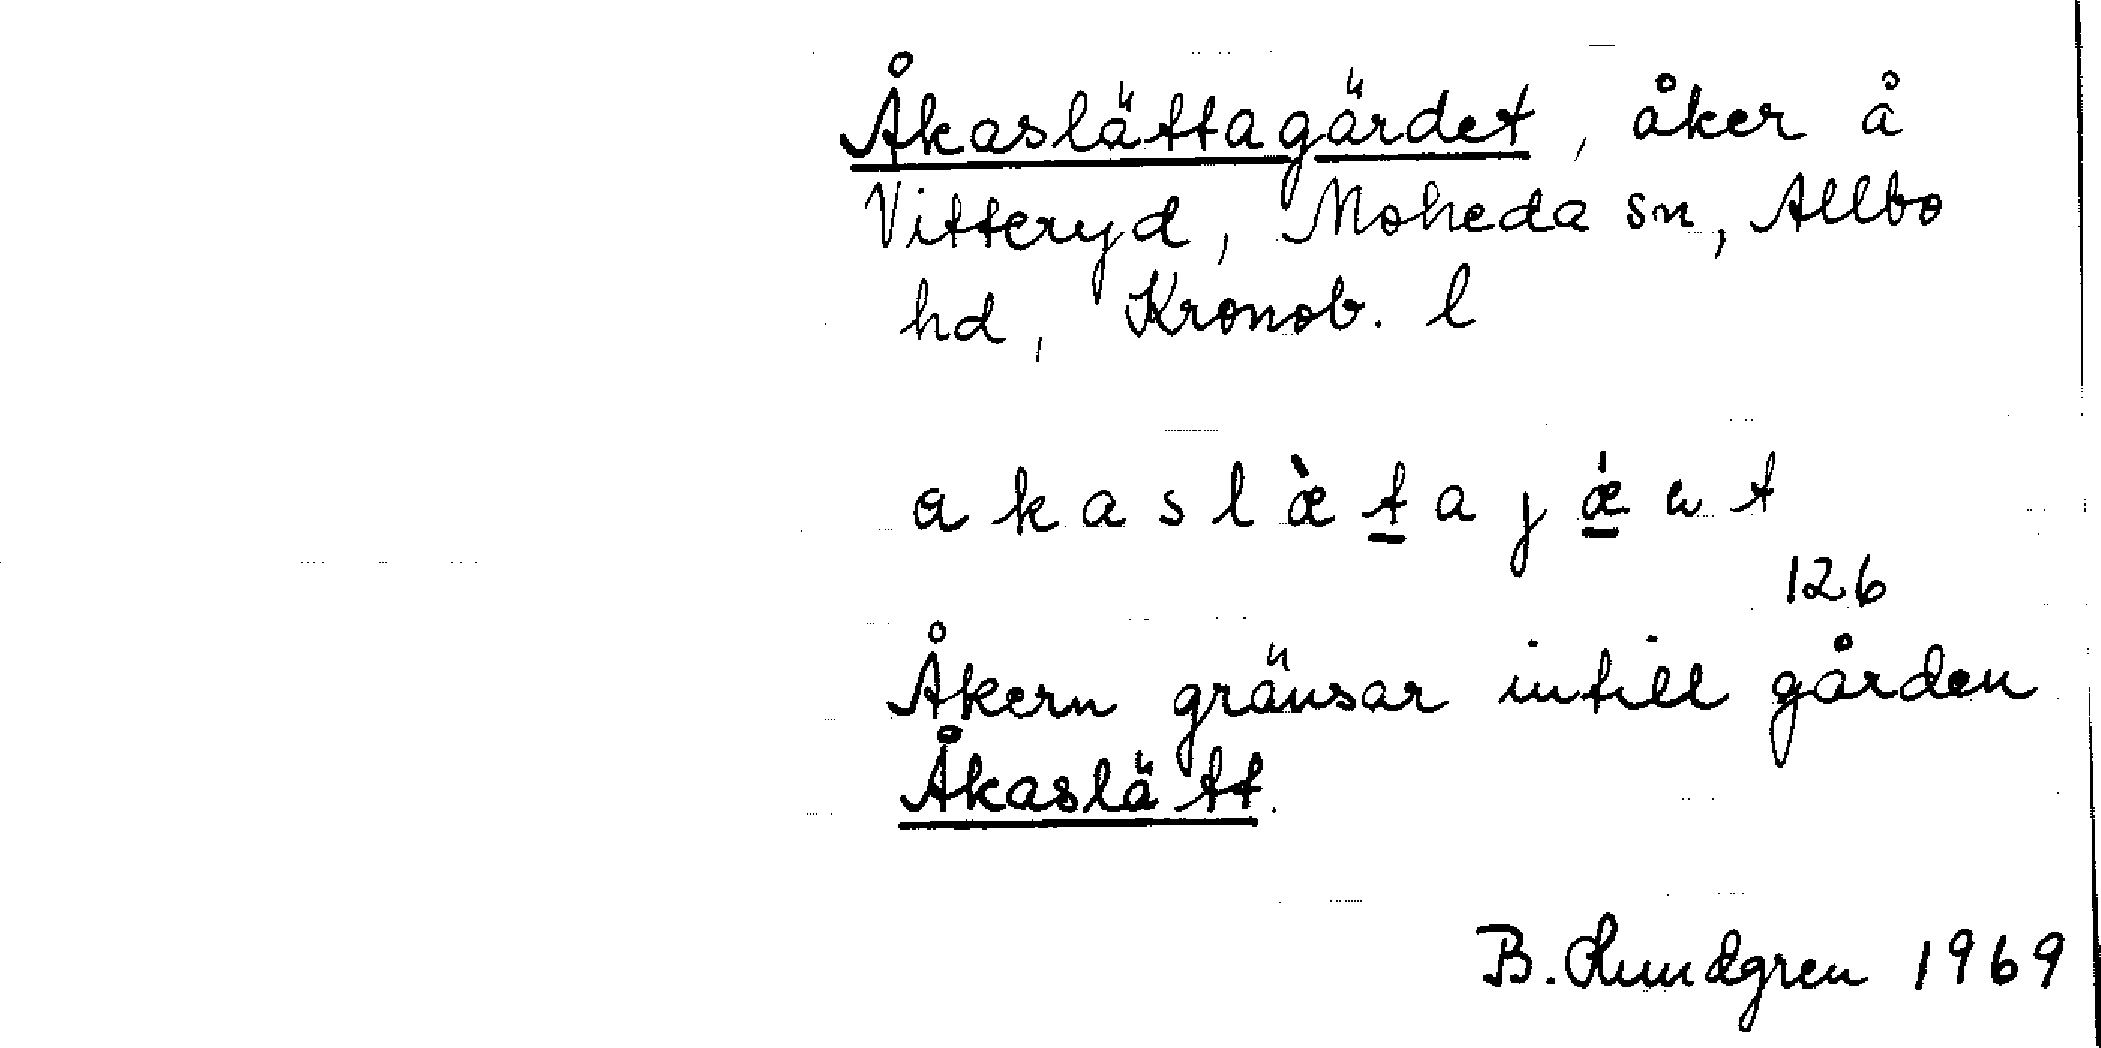 Åkaslättagärdet, åker å
Vitteryd, Moheda sn, Allbo
hd, Kronob. l
a k a s l æ̀ t a j ǽ
126
Åkern gränsar intill gården
Åkaslätt.
B. Lundgren 1969